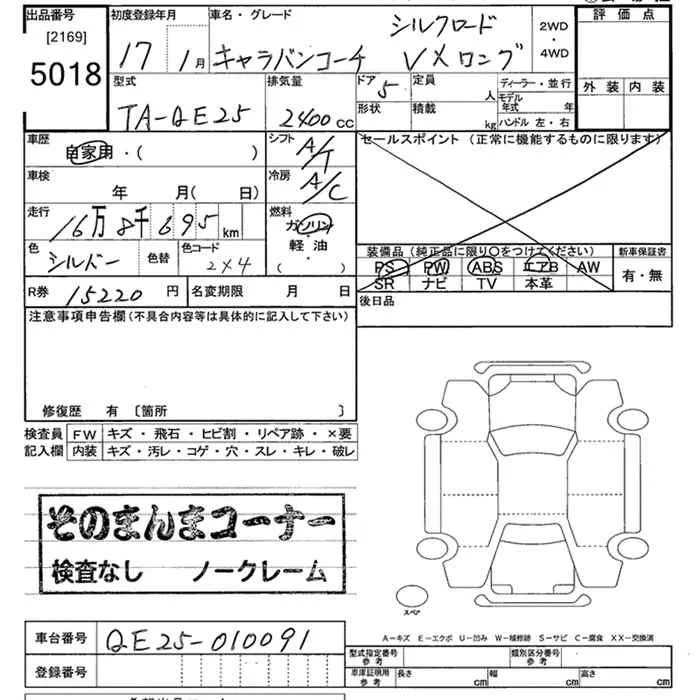 出品番号
[2169]
5018
初度登録年月
17年 1月
車名・グレード
シルクロード
キャラバンコーチ VXロング
2WD
・
4WD
評価点
外装 内装
型式
TA-QE25
排気量
2400 cc
ドア 5
形状
定員 人
積載 kg
ディーラー・並行
モデル年式 年
ハンドル 左・右
車歴
自家用・( )
シフト A/T
車検
年 月( 日)
冷房 A/C
走行
16万8千695 km
燃料
ガソリン
軽油
( )
色
シルバー
色替
色コード
2×4
セールスポイント (正常に機能するものに限ります)
装備品 (純正品に限り○をつけてください)
PS PW ABS エアB AW
SR ナビ TV 本革
新車保証書
有・無
R券 15220 円
名変期限 月 日
後日品
注意事項申告欄 (不具合内容等は具体的に記入して下さい)
修復歴 有 〔箇所 〕
検査員記入欄
FW キズ・飛石・ヒビ割・リペア跡・×要
内装 キズ・汚レ・コゲ・穴・スレ・キレ・破レ
そのまんまコーナー
検査なし ノークレーム
スペア
A-キズ E-エクボ U-凹み W-補修跡 S-サビ C-腐食 XX-交換済
車台番号 QE25-010091
登録番号
型式指定番号 参考
類別区分番号 参考
車庫証明用 参考
長さ cm 幅 cm 高さ cm